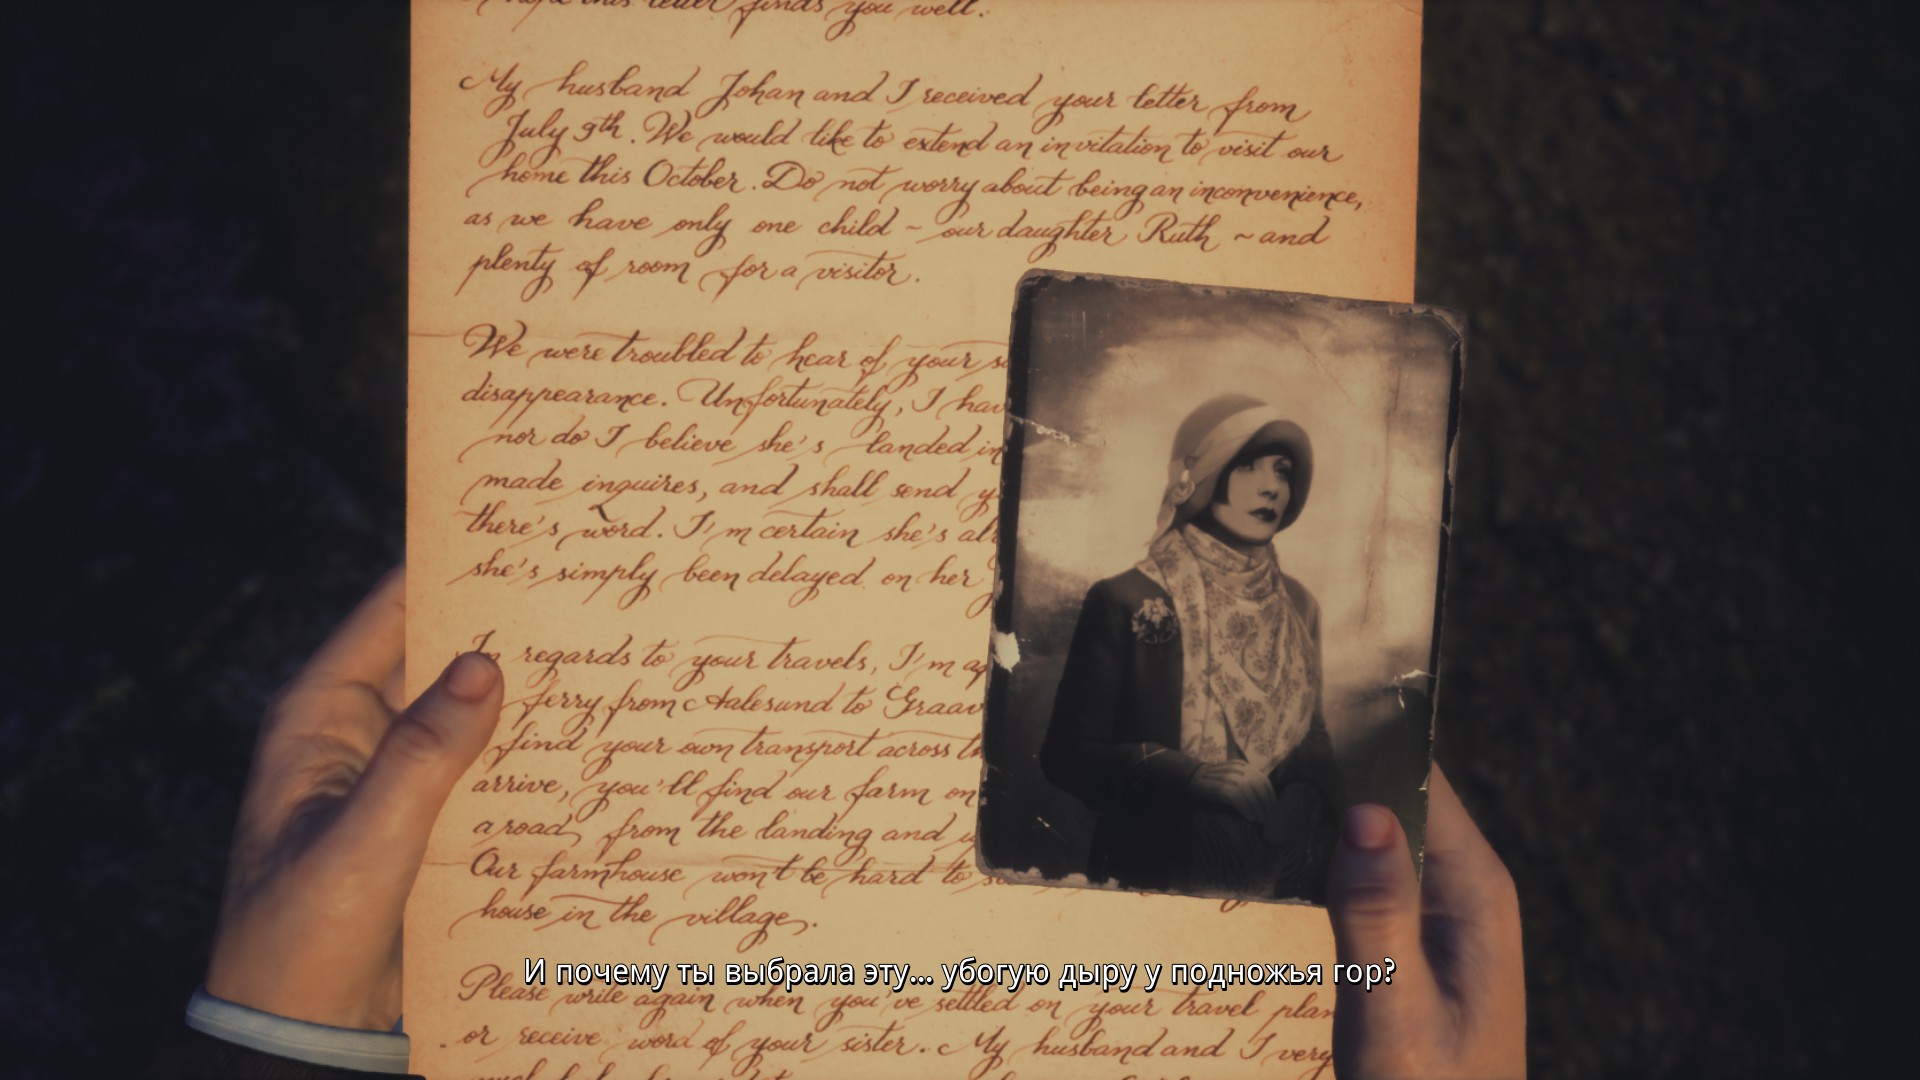 hope this letter finds you well.
My husband Johan and I received your letter from
July 9th. We would like to extend an invitation to visit our
home this October. Do not worry about being an inconvenience,
as we have only one child ~ our daughter Ruth ~ and
plenty of room for a visitor.
We were troubled to hear of your
disappearance. Unfortunately, I
nor do I believe she's landed
made inquires, and shall send
there's word. I'm certain she's
she's simply been delayed on her
In regards to your travels, I'm
ferry from Aalesund to
find your own transport across
arrive, you'll find our farm on
a road, from the landing and
Our farmhouse won't be hard to
house in the village.
И почему ты выбрала эту... убогую дыру у подножья гор?
Please write again when you've settled on your travel
or receive word of your sister. My husband and I very